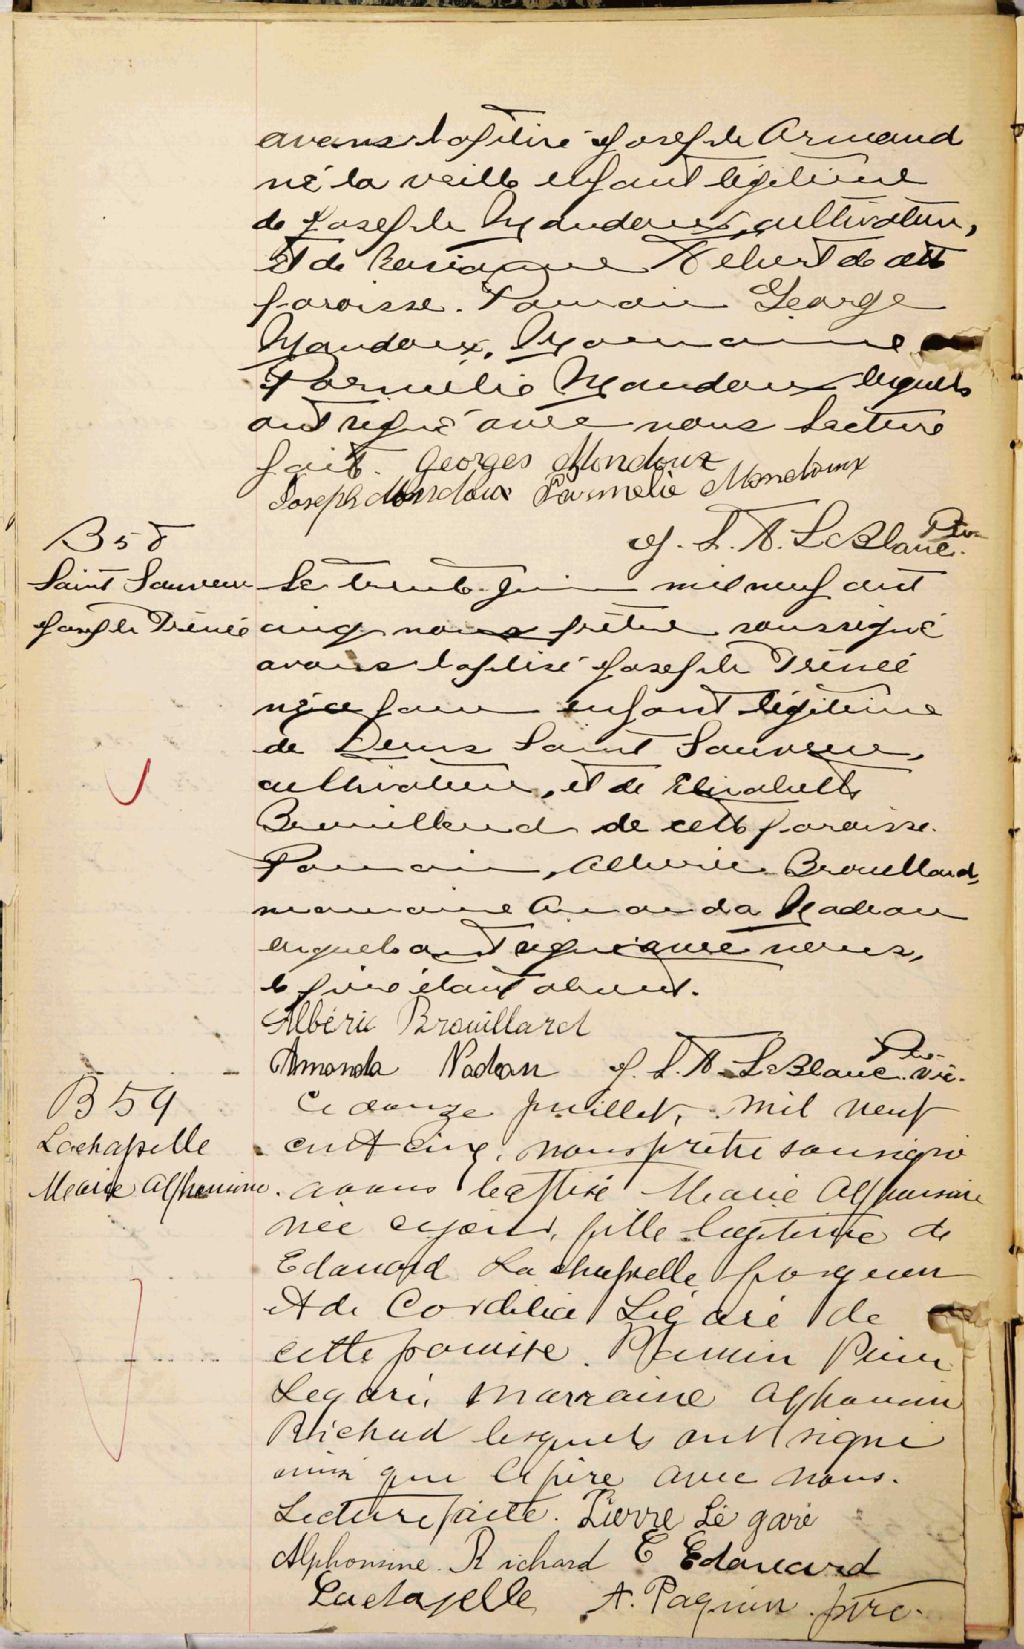 avons baptisé Joseph Armand
né la veille enfant légitime
de Joseph Mondoux, cultivateur,
et de Hébert de cette
paroisse. Parrain George
Mondoux, Marraine
Parmélie Mondoux lesquels
ont signé avec nous Lecture
faite. Georges Mondoux
Joseph Mondoux Parmelie Mondoux
J. L. A. LeBlanc Ptre
B 58
Saint Sauveur
Joseph Irénée
Le trente Juin mil neuf cent
cinq nous prêtre soussigné
avons baptisé Joseph Irénée
né ce jour enfant légitime
de Denis Saint Sauveur,
cultivateur, et de Elizabeth
Brouillard de cette paroisse.
Parrain, Albéric Brouillard,
marraine Amanda Nadeau
lesquels ont signé avec nous,
le père étant absent.
Albéric Brouillard
Amanda Nadeau J. L. A. LeBlanc Ptre Vic.
B 59
Lachapelle
Marie Alphonsine
Ce douze juillet, mil neuf
cent cinq, nous prêtre soussigné
avons baptisé Marie Alphonsine
née ce jour, fille légitime de
Edouard Lachapelle forgeron
et de Cordelia Légaré de
cette paroisse. Parrain Pierre
Legaré, marraine Alphonsine
Richard lesquels ont signé
ainsi que le père avec nous.
Lecture faite. Pierre Légaré
Alphonsine Richard E Edouard
Lachapelle A. Paquin ptre.